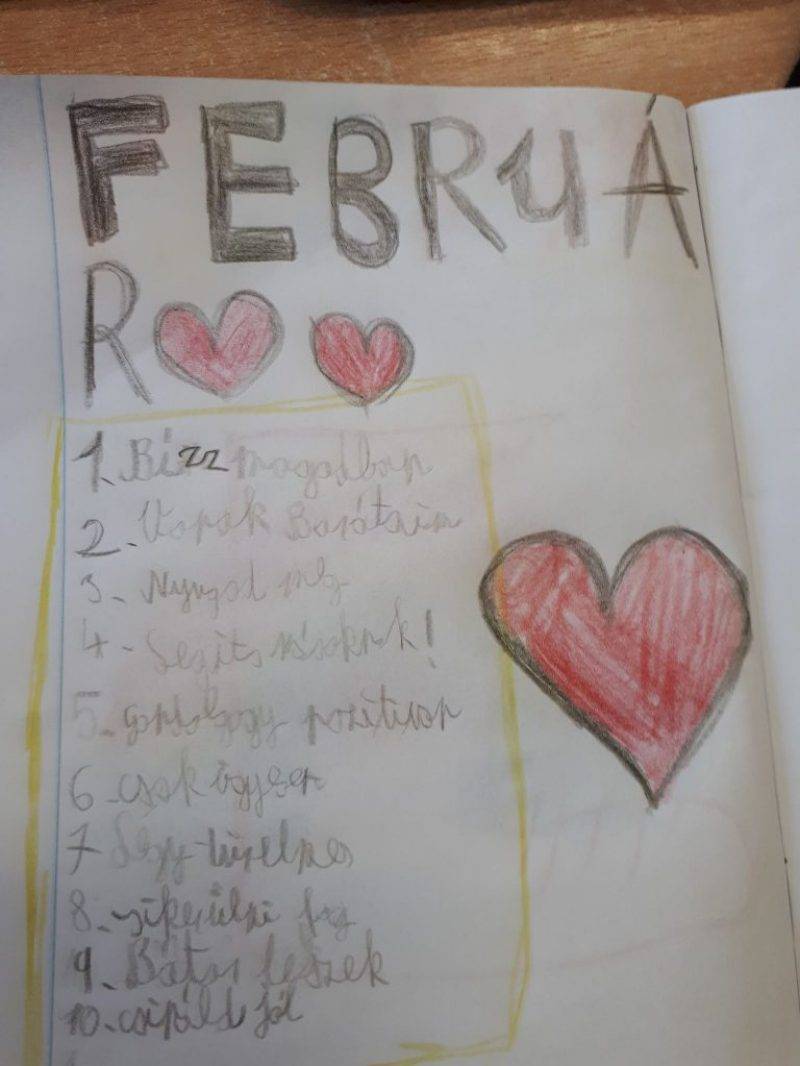 FEBRUÁ
R
1. Bízz magadban
2. Vanak Barátaim
3. Nyugod meg
4. Segíts másoknak!
5. gondolkogy pozitivan
6 csak ügyesen
7 Légy türelmes
8. sikerülni fog
9. Bátor leszek
10. csináld jól